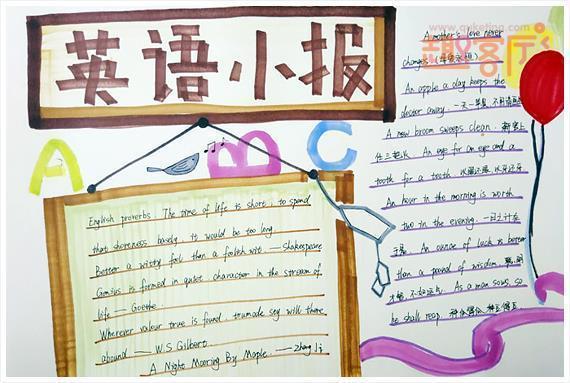 英语小报
www.quketing.com
趣客厅
A B C
English proverbs : The time of life is short ; to spend
that shoreness basely, it would be too long.
Better a witty fool than a foolish wit. —Shakespeare
Genius is formed in quiet, character in the stream of
life — Goethe
Wherever valour true is found, true modesty will there
abound — W.S Gilbert.
A Night Mooring By Maple — Zhang Ji
A mother's love never
changes (母爱永恒)
An apple a day keeps the
doctor away. 一天一苹果, 不用请医生
A new broom sweeps clean. 新官上
任三把火 An eye for an eye and a
tooth for a tooth 以眼还眼 以牙还牙
An hour in the morning is worth
two in the evening. 一日之计在
于晨 An ounce of luck is better
than a pound of wisdom.
才智, 不如运气. As a man sows so
he shall reap. 种瓜得瓜, 种豆得豆